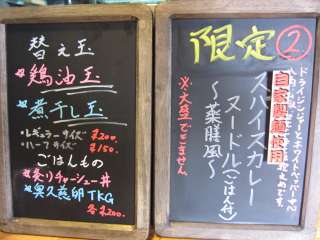 替え玉
鶏油玉
煮干し玉
レギュラーサイズ ¥200.
ハーフサイズ ¥150.
ごはんもの
炙りチャーシュー丼
奥久慈卵TKG
各¥200.
限定②
自家製麺使用
スパイスカレー
ヌードル(ごはん付)
〜薬膳風〜
※大盛できません。